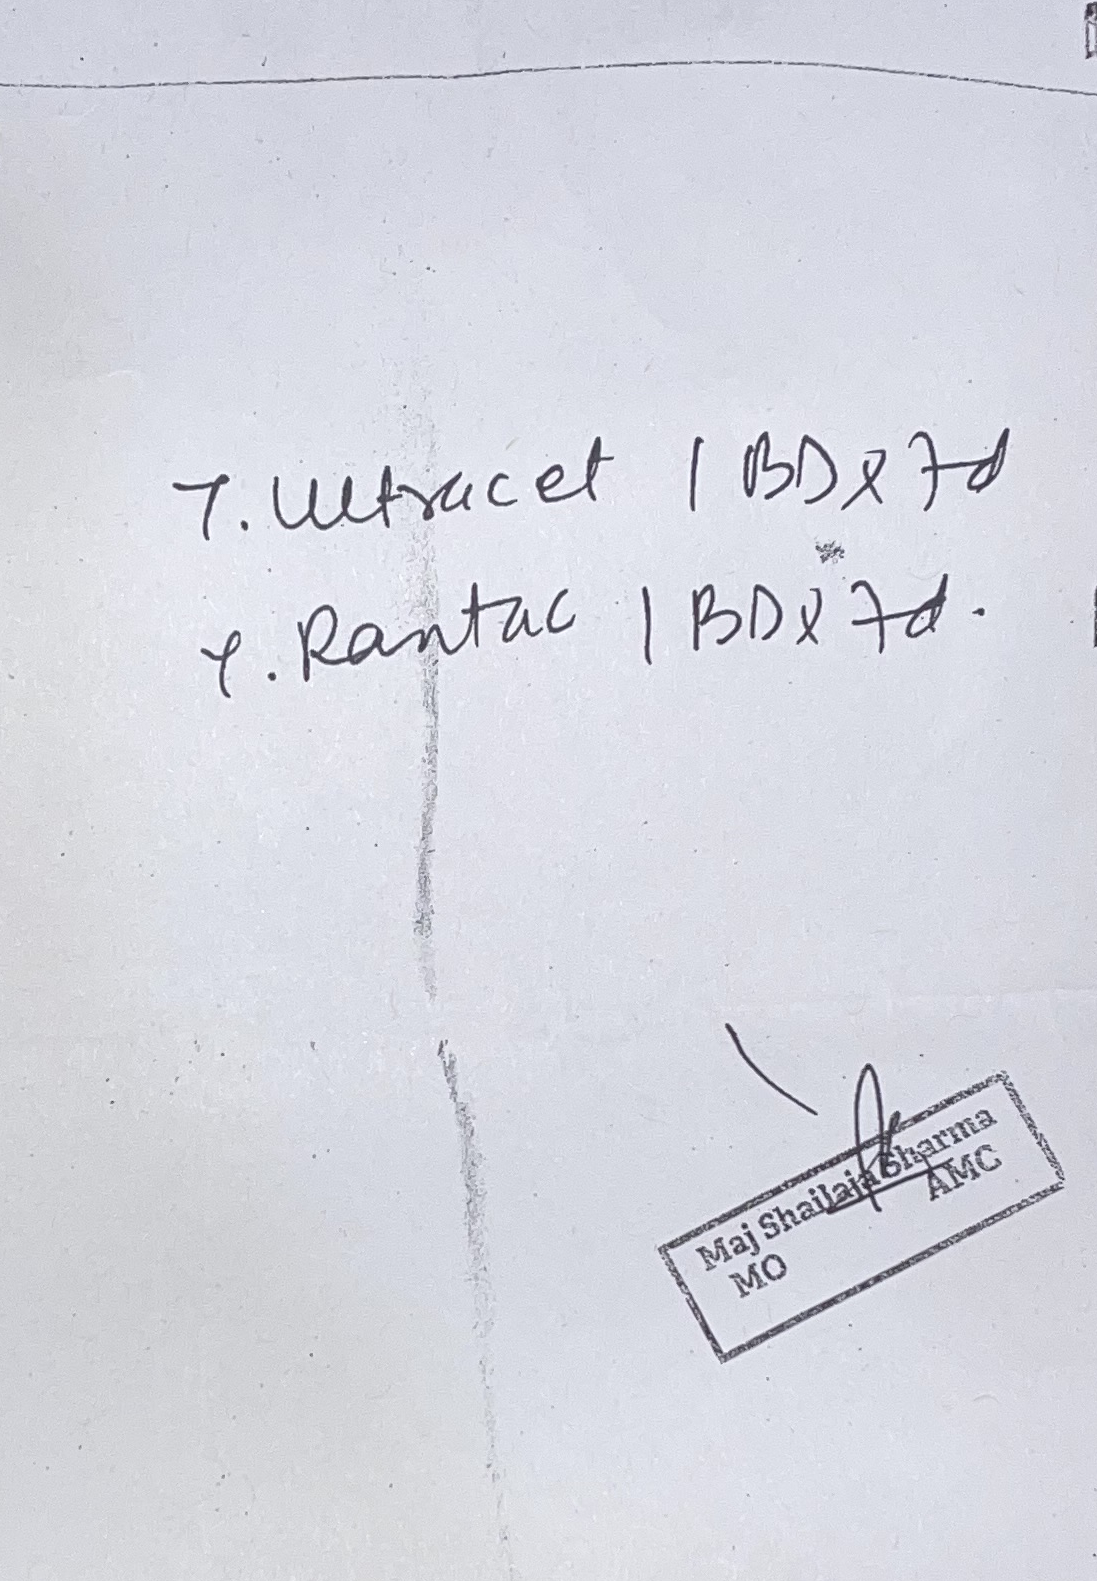 T. Ultracet 1 BD x 7d
T. Rantac 1 BD x 7d.
Maj Shailaja Sharma
AMC
MO